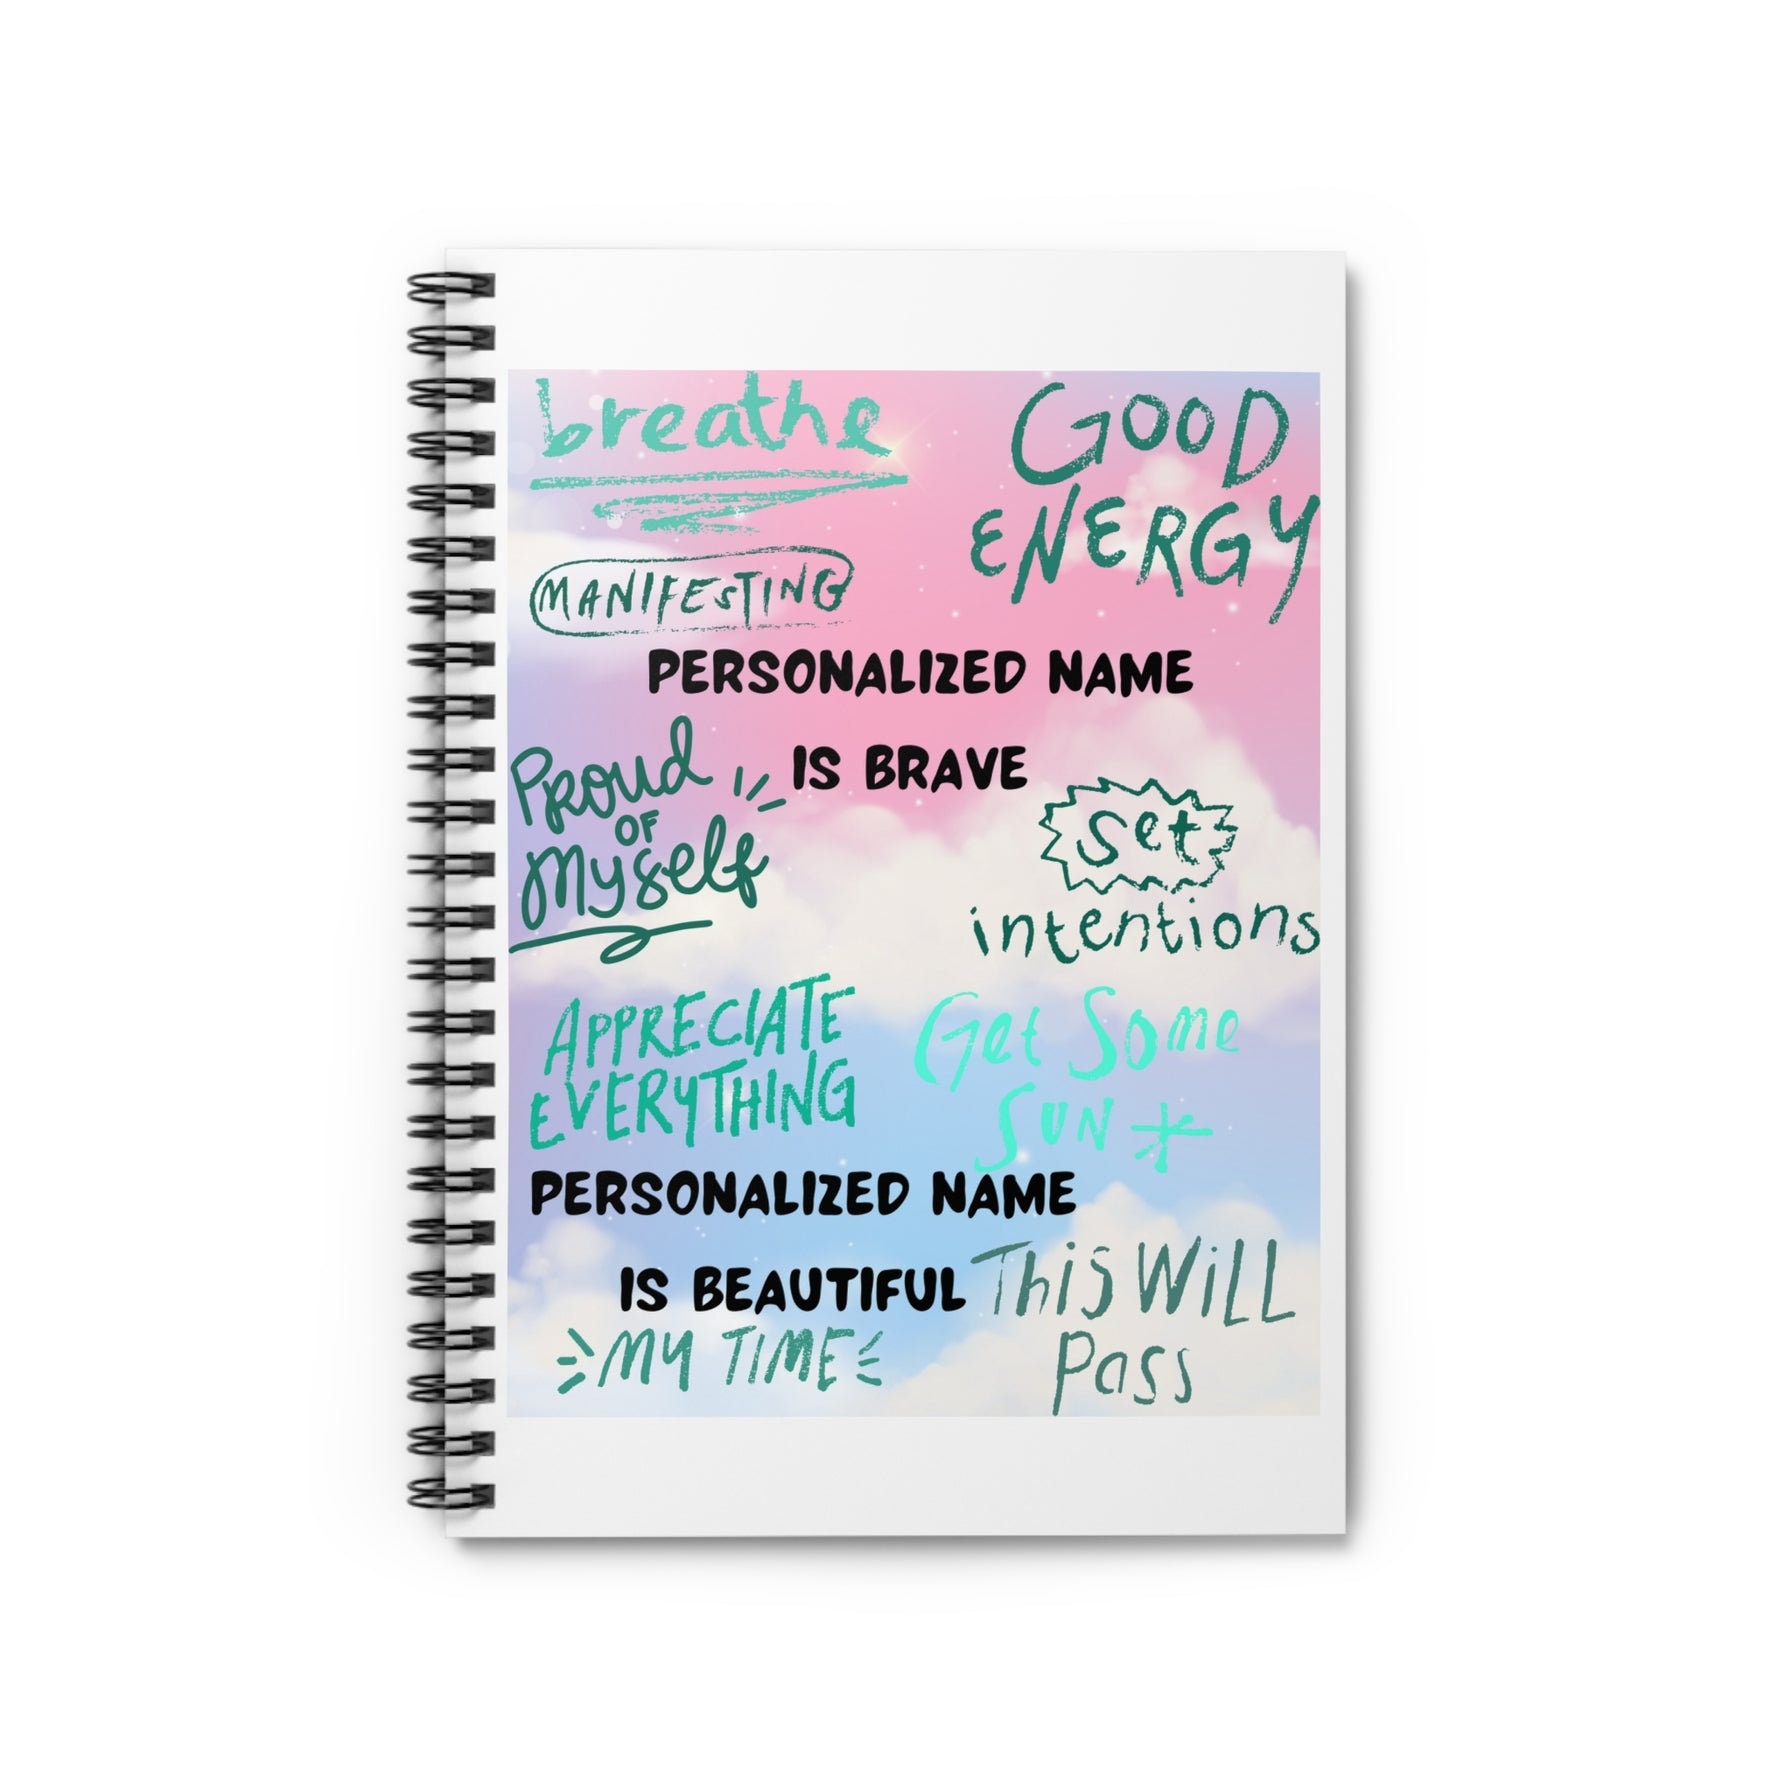 breathe
GOOD
ENERGY
MANIFESTING
PERSONALIZED NAME
IS BRAVE
Proud
OF
Myself
Set
intentions
APPRECIATE
EVERYTHING
Get Some
SUN
PERSONALIZED NAME
IS BEAUTIFUL
THiS WiLL
Pass
MY TIME